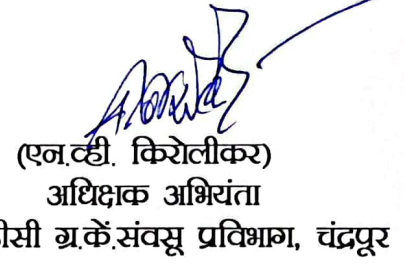 (एन.व्ही. किरोलीकर)
अधिक्षक अभियंता
ग्र.कें.संवसू प्रविभाग, चंद्रपूर